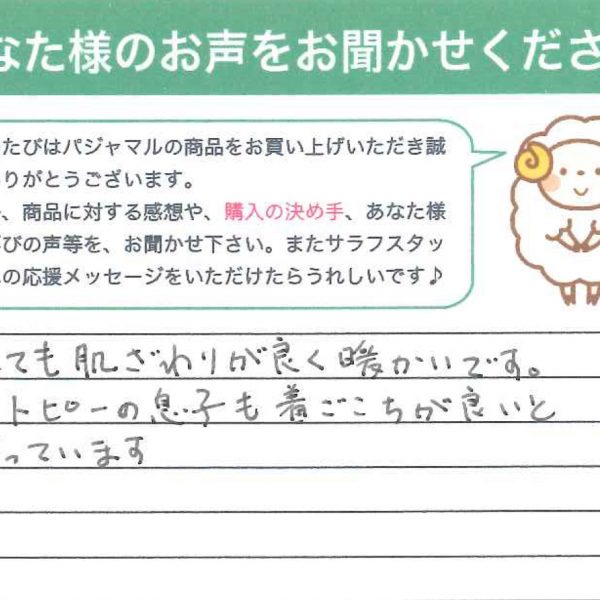 なた様のお声をお聞かせくださ
たびはパジャマルの商品をお買い上げいただき誠
りがとうございます。
、商品に対する感想や、購入の決め手、あなた様
びの声等を、お聞かせ下さい。またサラフスタッ
の応援メッセージをいただけたらうれしいです♪
ても肌ざわりが良く暖かいです。
トピーの息子も着ごこちが良いと
っています